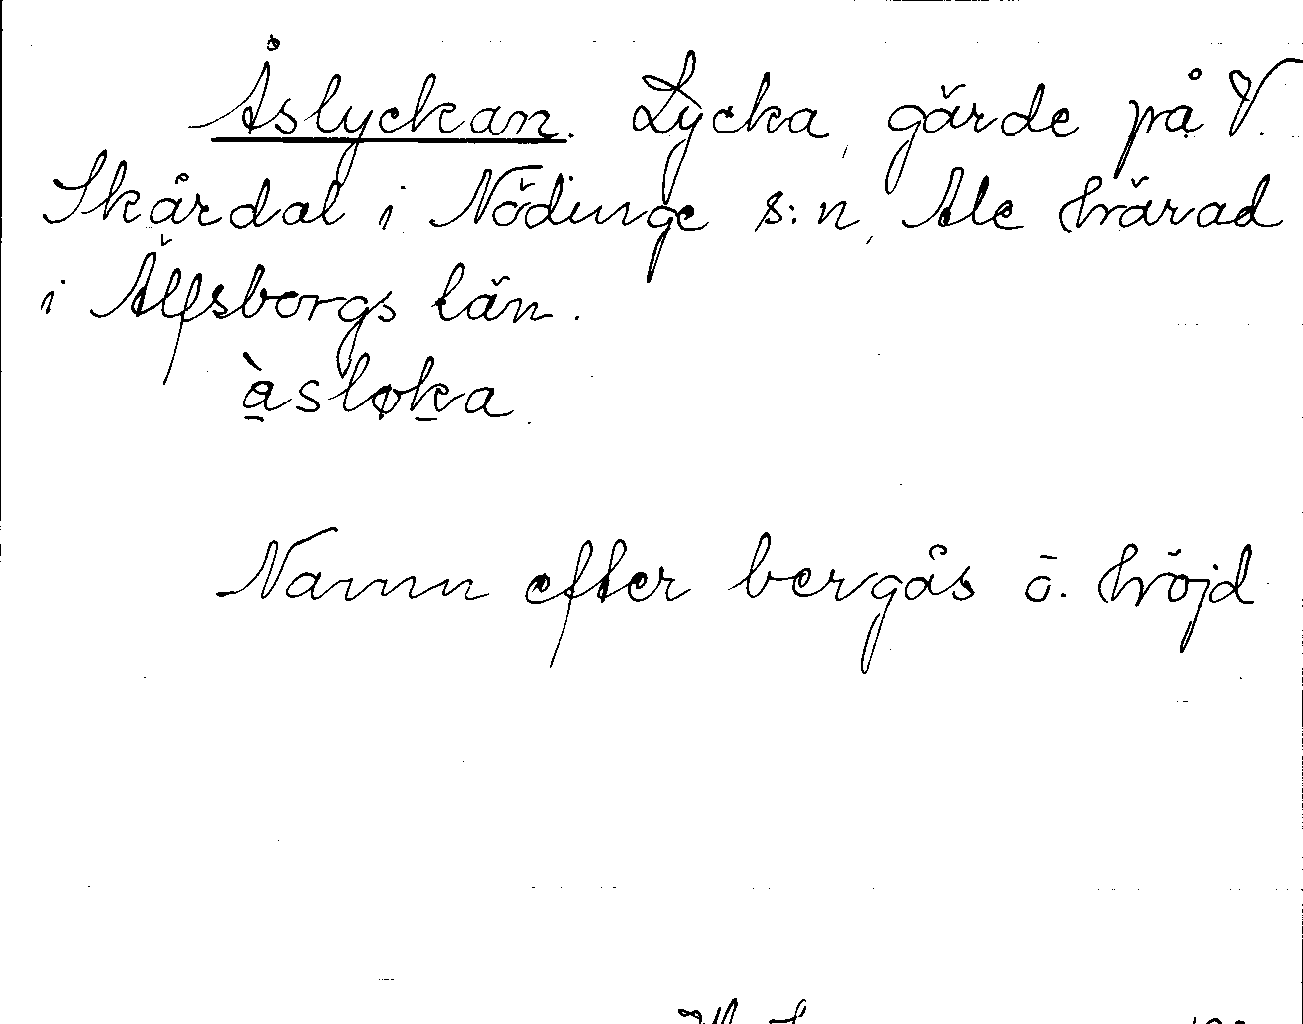 Åslyckan. Lycka, gärde på V.
Skårdal i Nödinge s:n, Ale härad
i Älfsborgs län.
à̠sløk̠a.
Namn efter bergås o. höjd